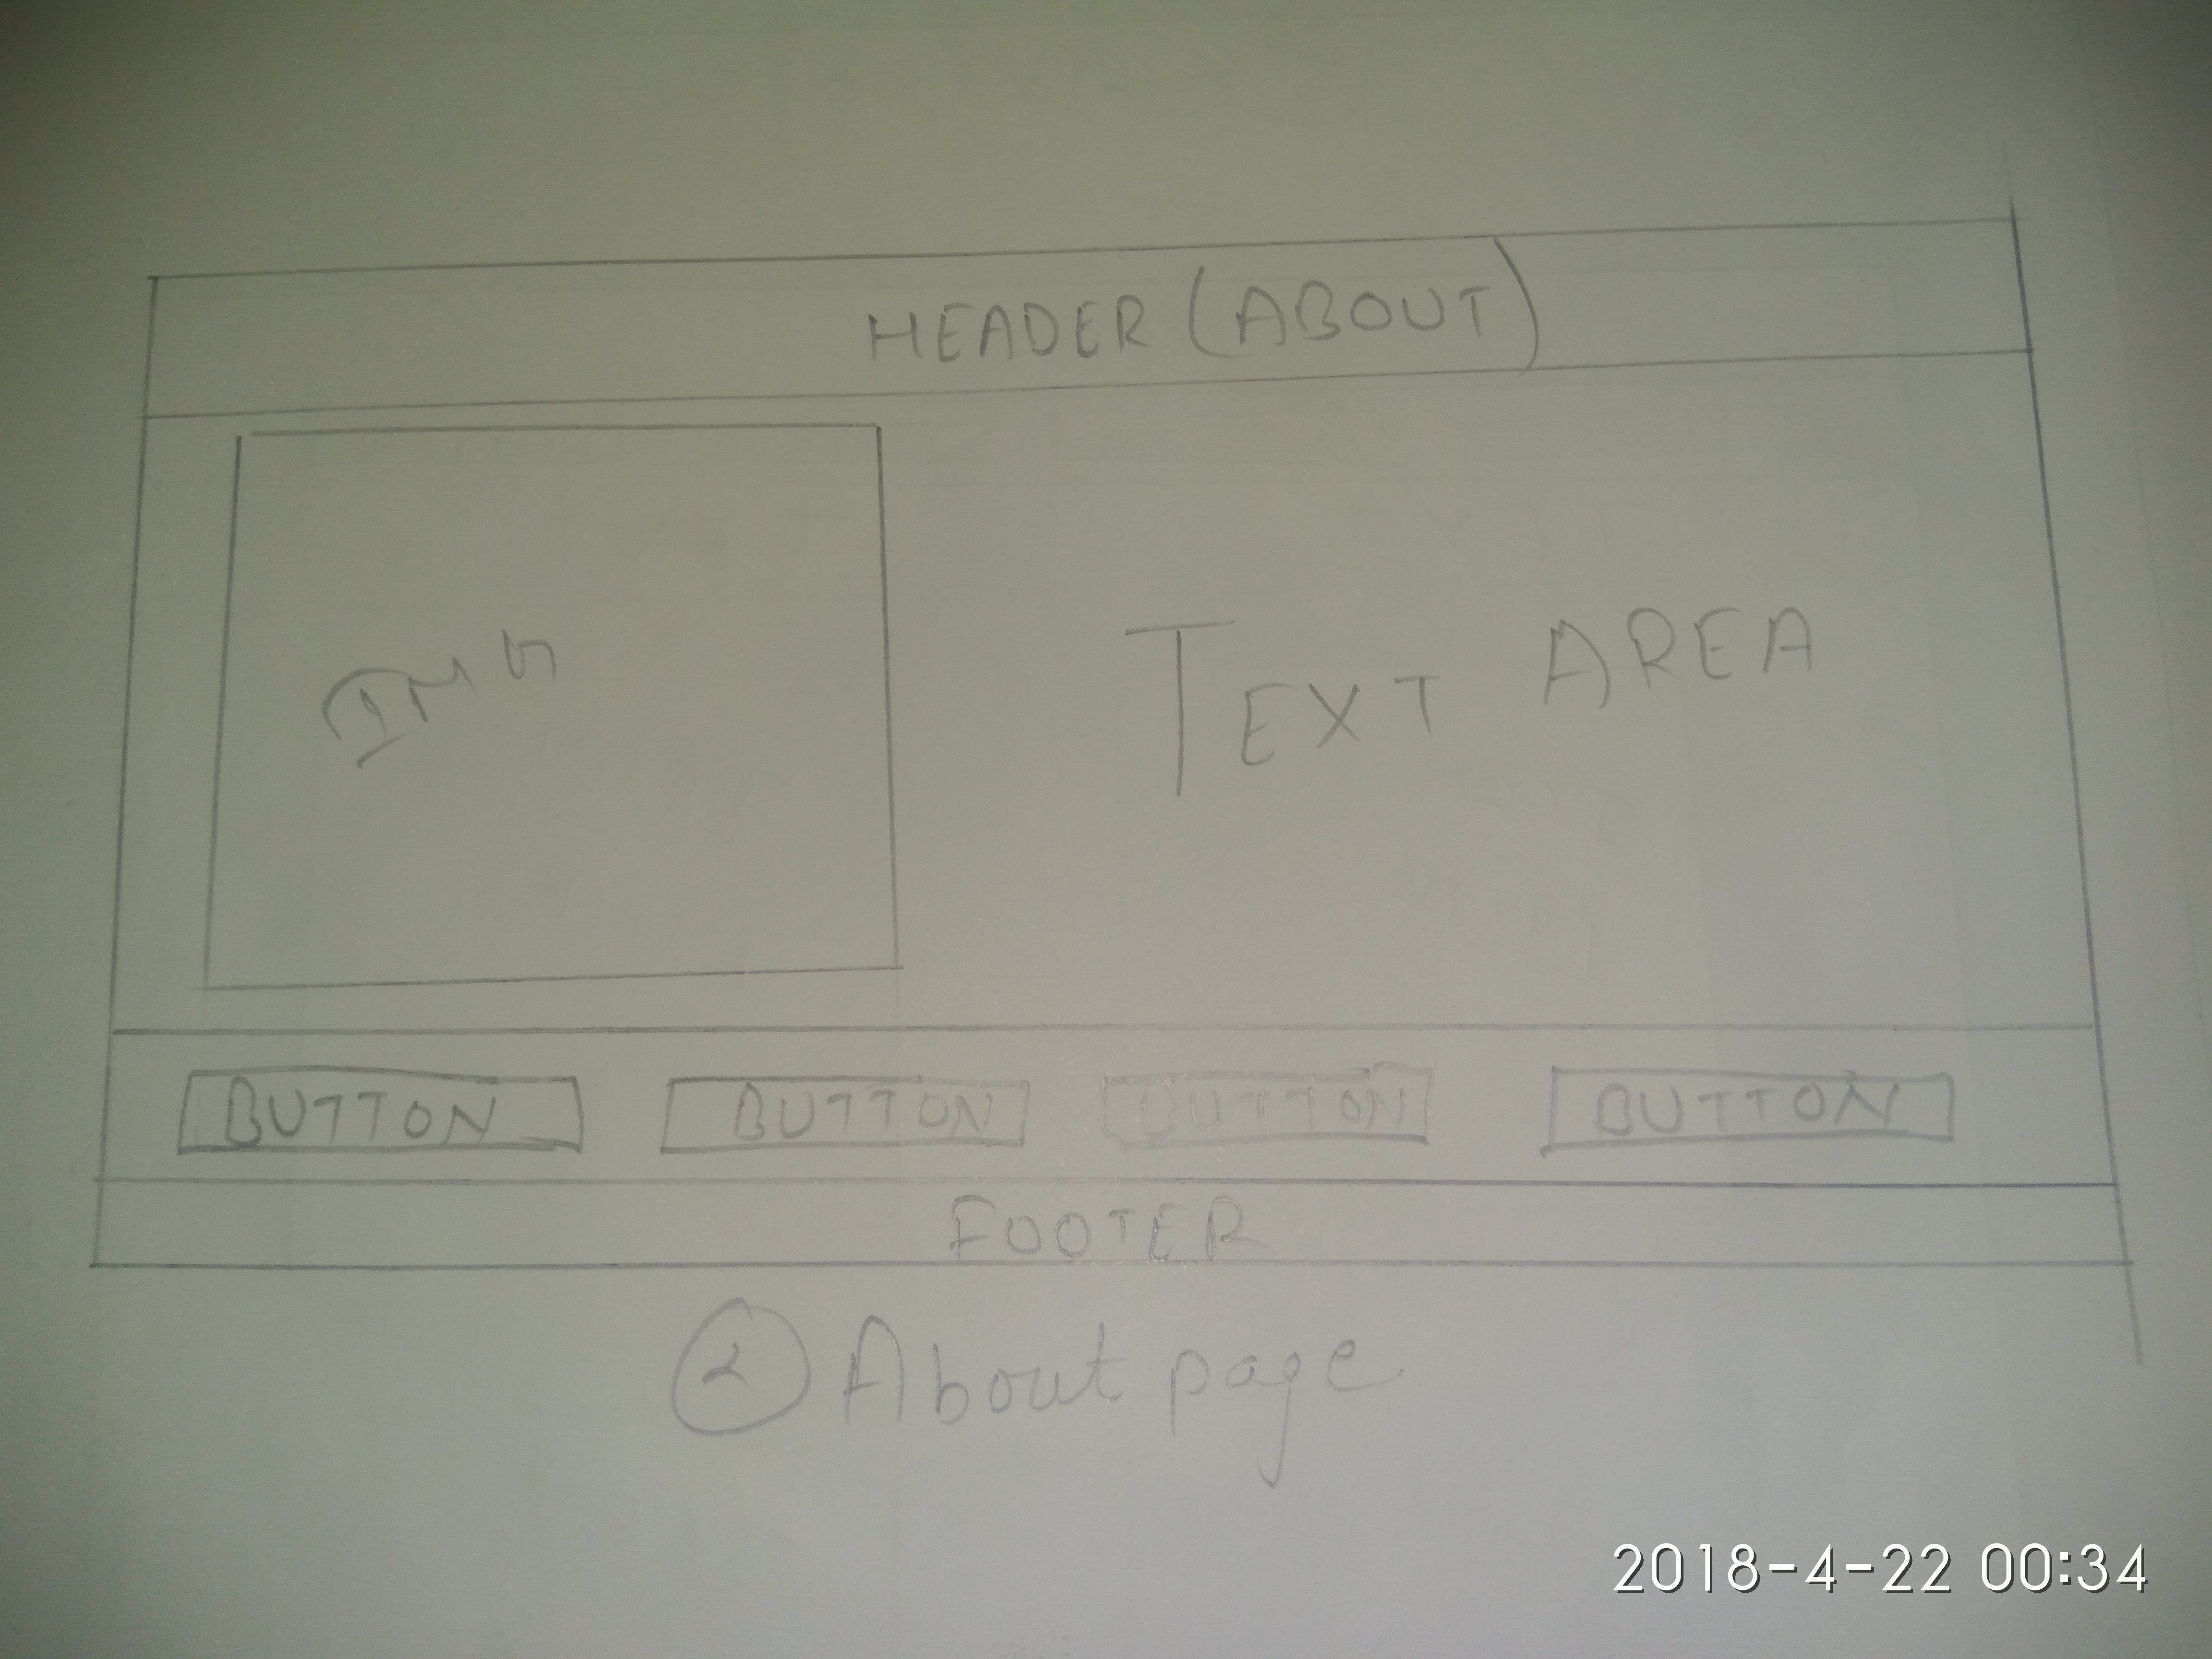 HEADER (ABOUT)
IMG
TEXT AREA
BUTTON BUTTON BUTTON BUTTON
FOOTER
2 About page
2018-4-22 00:34